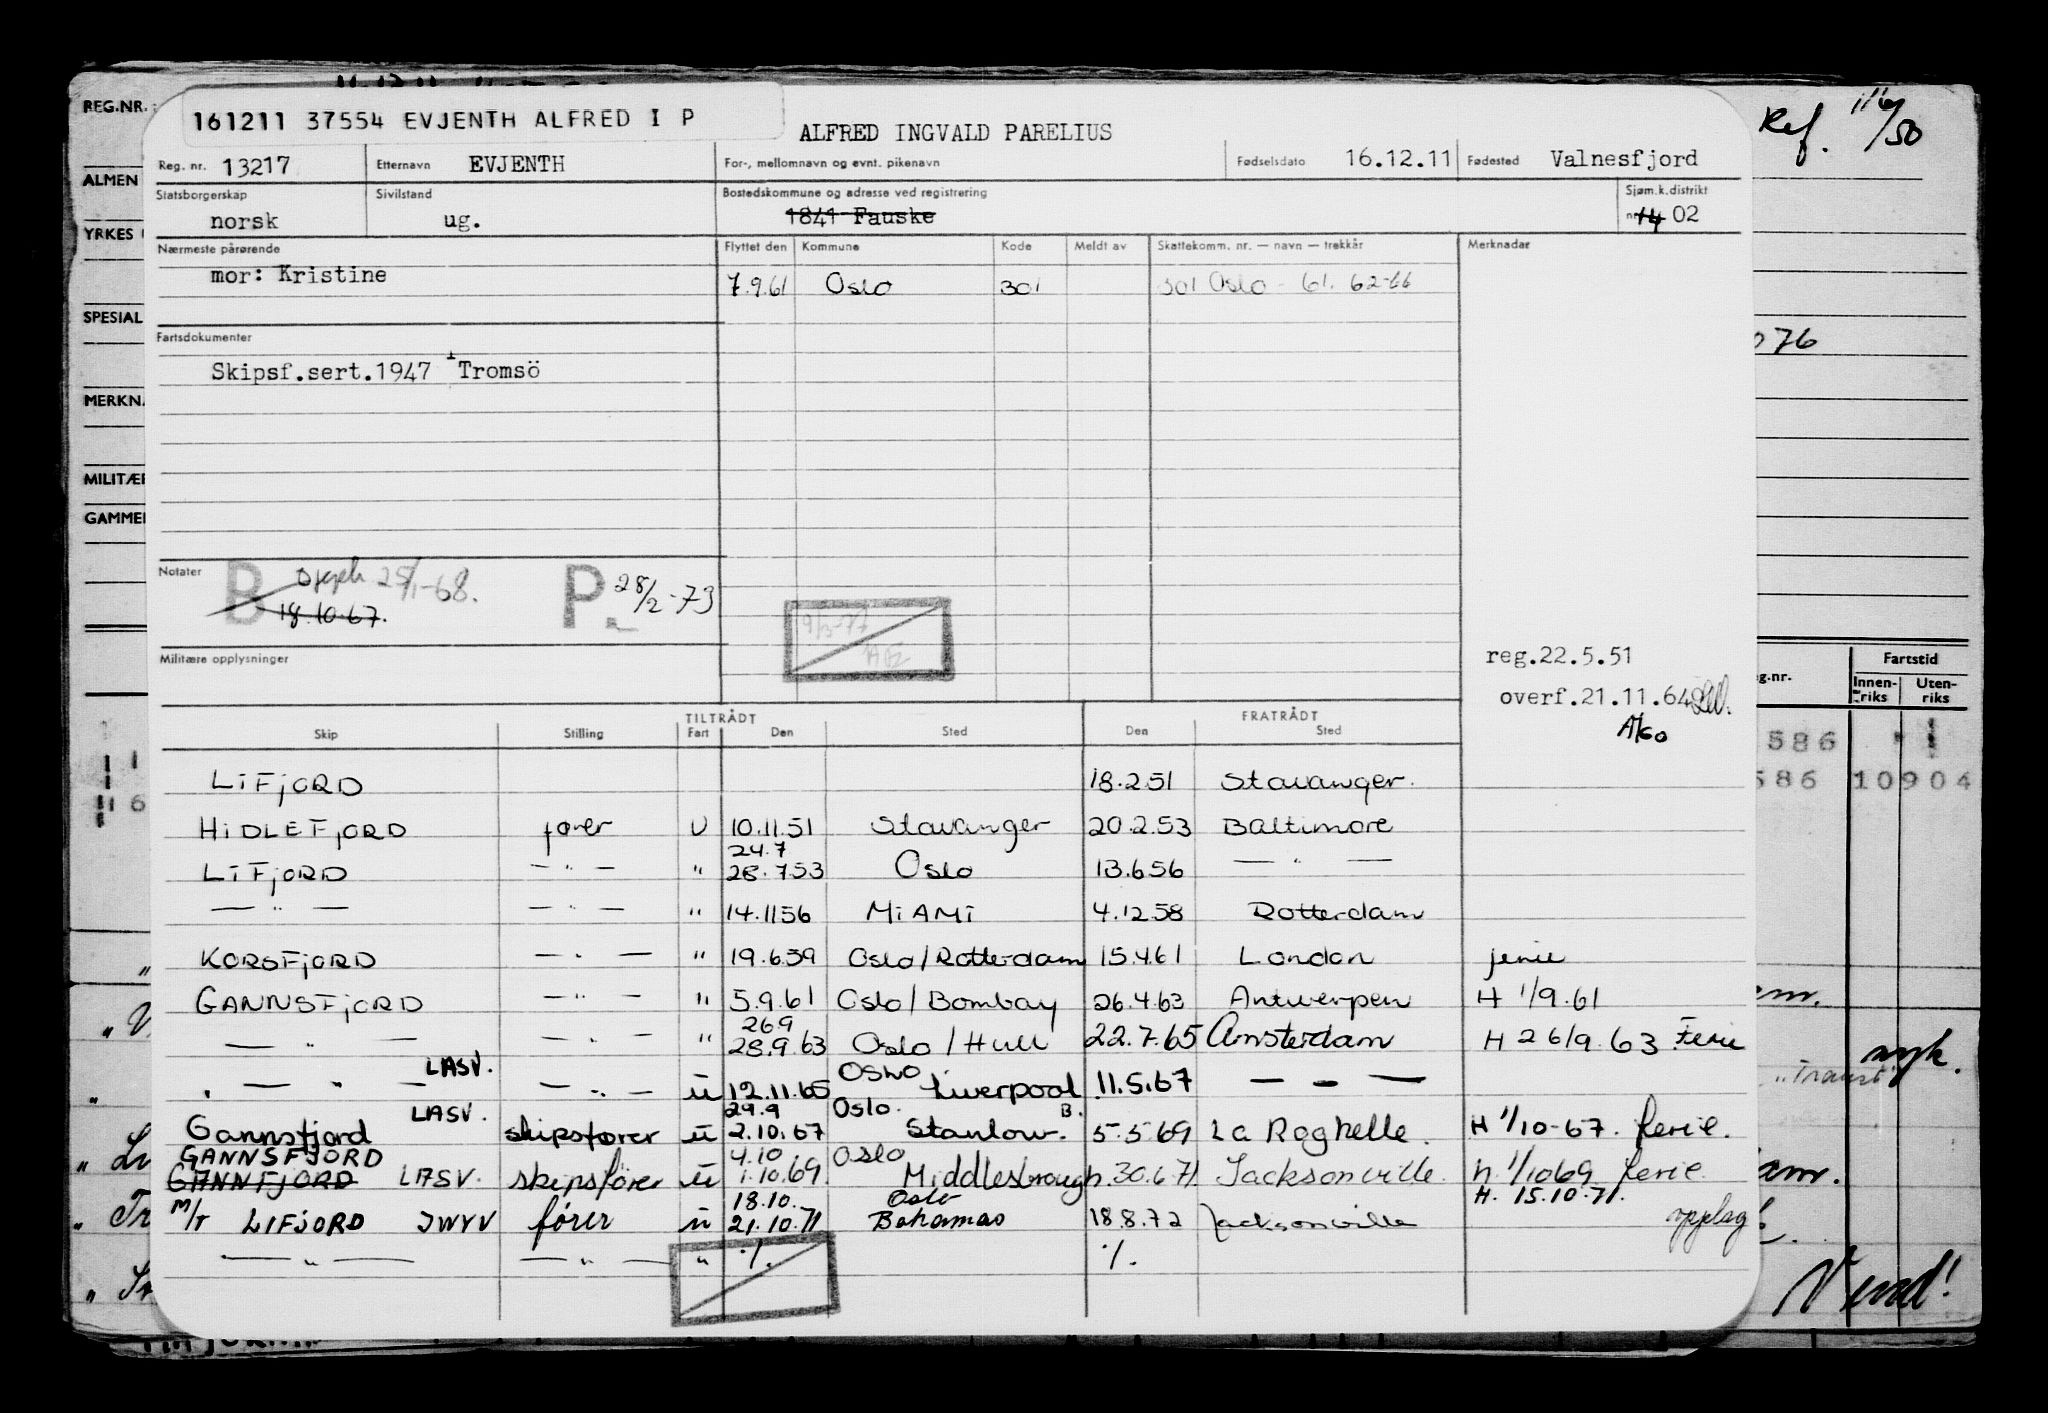 REG.NR.
161211 37554 EVJENTH ALFRED I P
ALFRED INGVALD PARELIUS
Ref. /50
Reg. nr. 13217 Etternavn EVJENTH For-, mellomnavn og evnt. pikenavn Fødselsdato 16.12.11 Fødested Valnesfjord
ALMEN
Statsborgerskap Sivilstand Bostedskommune og adresse ved registrering Sjøm.k.distrikt
norsk ug. 1841 Fauske nr 14 02
YRKES
Nærmeste pårørende Flyttet den Kommune Kode Meldt av Skattekomm. nr. — navn — trekkår Merknader
mor: Kristine
7.9.61 Oslo 301 301 Oslo - 61. 62-66
SPESIAL
Fartsdokumenter
076
Skipsf.sert.1947 Tromsö
MERKNA
MILITÆR
GAMMEL
Notater B 25/1-68. P. 28/2-73
18.10.67.
Militære opplysninger
reg.22.5.51
overf.21.11.64
Fartstid
g.nr. Innenriks Utenriks
TILTRÅDT FRATRÅDT
Skip Stilling Fart Den Sted Den Sted
586
586 10904
LiFjORD 18.2.51 Stavanger.
HiDLEFjORD fører U 10.11.51 Stavanger 20.2.53 Baltimore
24.7
LiFjORD — " — " 28.7.53 Oslo 13.6.56 — " —
— " — — " — " 14.11.56 MiAMi 4.12.58 Rotterdam
KORSFjORD — " — " 19.6.59 Oslo/Rotterdam 15.4.61 London ferie
GANNSFjORD — " — " 5.9.61 Oslo/Bombay 26.4.63 Antwerpen H 1/9.61
26.9
— " — — " — " 28.9.63 Oslo/Hull 22.7.65 Amsterdam H 26/9.63 Ferie
LASV. Oslo
— " — — " — u 12.11.65 Liverpool 11.5.67 — " —
LASV. 29.9 Oslo. B.
Gannsfjord skipsfører u 2.10.67 Stanlow. 5.5.69 La Roghelle. H 1/10-67. ferie.
GANNSFJORD 4.10 Oslo
GANNFJORD LASV. skipsfører u 1.10.69. Middlesbrough. 30.6.71 Jacksonville. h 1/10 69 ferie.
18.10. Oslo H. 15.10.71.
M/T LIFJORD JWYV fører u 21.10.71 Bahamas 18.8.72 Jacksonville opplag
— " — — " — " ./. ./.
Vend!